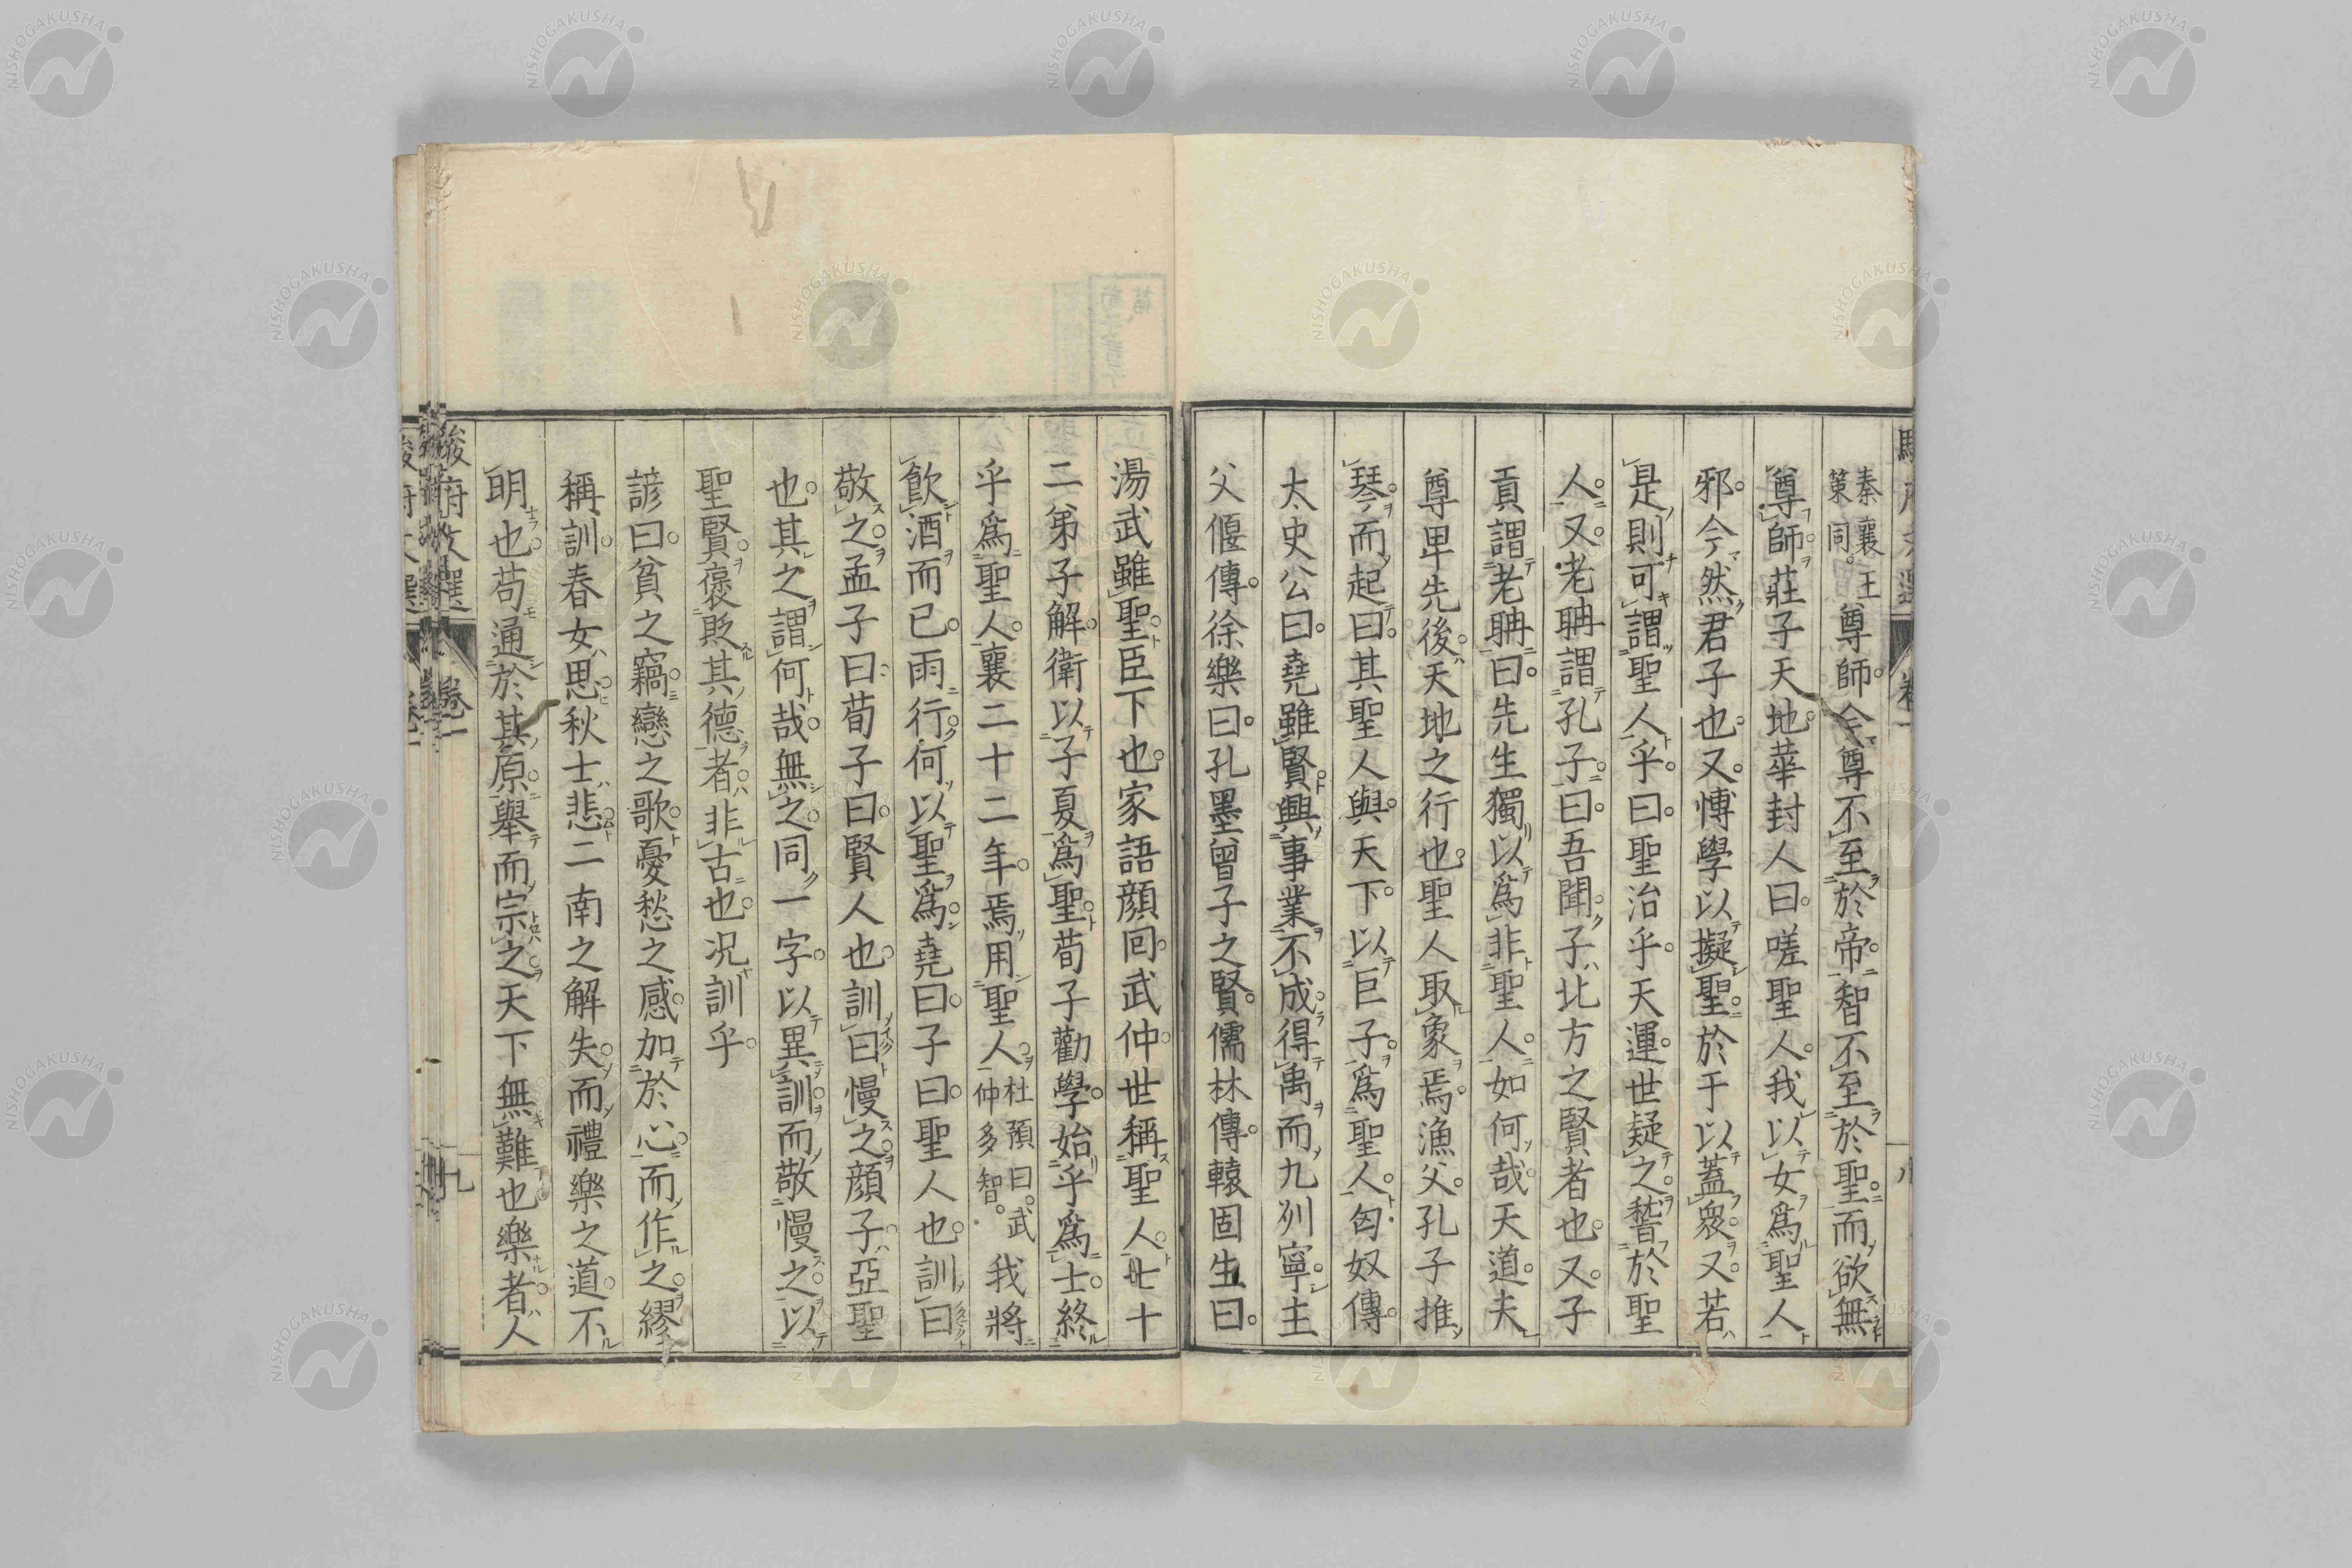 秦襄王策同。尊師。今尊不至於帝。智不至於聖。而欲無
尊師。莊子天地。華封人曰。嗟聖人。我以女爲聖人
邪。今然君子也。又。博學以擬聖。於于以蓋衆。又。若
是則可謂聖人乎。曰。聖治乎。天運。世疑之。稽於聖
人。又。老聃謂孔子。曰。吾聞。子北方之賢者也。又。子
貢謂老聃曰。先生獨以爲非聖人。如何哉。天道。夫
尊卑先後。天地之行也。聖人取象焉。漁父。孔子推
琴。而起曰。其聖人與。天下。以巨子。爲聖人。匈奴傳。
太史公曰。堯雖賢。興事業不成。得禹而九州寧。主
父偃傳。徐樂曰。孔墨曾子之賢。儒林傳。轅固生曰。
湯武雖聖。臣下也。家語顏回。武仲。世稱聖人。七十
二弟子解。衛以子夏爲聖。荀子勸學。始乎爲士。終
乎爲聖人。襄二十二年。焉用聖人。杜預曰。武仲多智。我將
飲酒而已。雨行。何以聖爲。堯曰。子曰。聖人也。訓曰
敬之。孟子曰。荀子曰。賢人也。訓曰慢之。顏子。亞聖
也。其之謂何哉。無之。同一字。以異訓。而敬慢之。以
聖賢。褒貶其德者。非古也。況訓乎。
諺曰。貧之竊。戀之歌。憂愁之感。加於心。而作之。繆
稱訓。春女思。秋士悲。二南之解失。而禮樂之道。不
明也。苟通於其原。舉而宗之。天下無難也。樂者。人
駿府文選
卷一
九
NISHOGAKUSHA